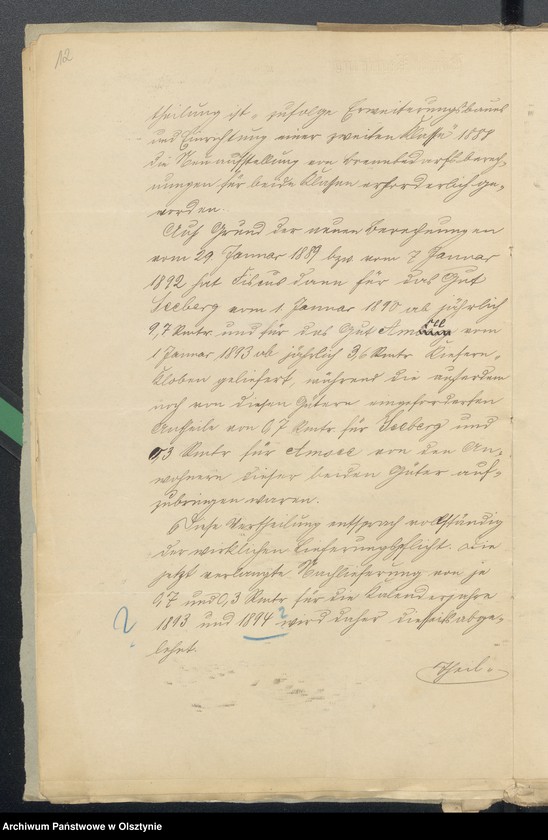 12
theilung ist, zufolge Erweiterungsbaues
und Einrichtung einer zweiten Klasse 1889
die Neuaufstellung von Brennbedarfsberech-
nungen für beide Klassen erforderlich ge-
worden.
Auf Grund der neuen Berechnungen
vom 29 Januar 1889 bzw. vom 7 Januar
1892 hat Fiscus dann für das Gut
Seeberg vom 1 Januar 1890 ab jährlich
9,7 Rmtr und für das Gut vom
1 Januar 1893 ab jährlich 3,6 Rmtr Kiefern-
Kloben geliefert, während die außerdem
noch von diesen Gütern eingeforderten
Antheile von 0,7 Rmtr für Seeberg und
0,3 Rmtr für von den An-
wohnern dieser beiden Güter auf-
zubringen waren.
Diese Vertheilung entsprach vollständig
der wirklichen Lieferungspflicht. Die
jetzt verlangte Nachlieferung von je
0,7 und 0,3 Rmtr für die Kalenderjahre
? 1893 und 1894 ? wird daher dieseits abge-
lehnt.
Theil-
Archiwum Państwowe w Olsztynie